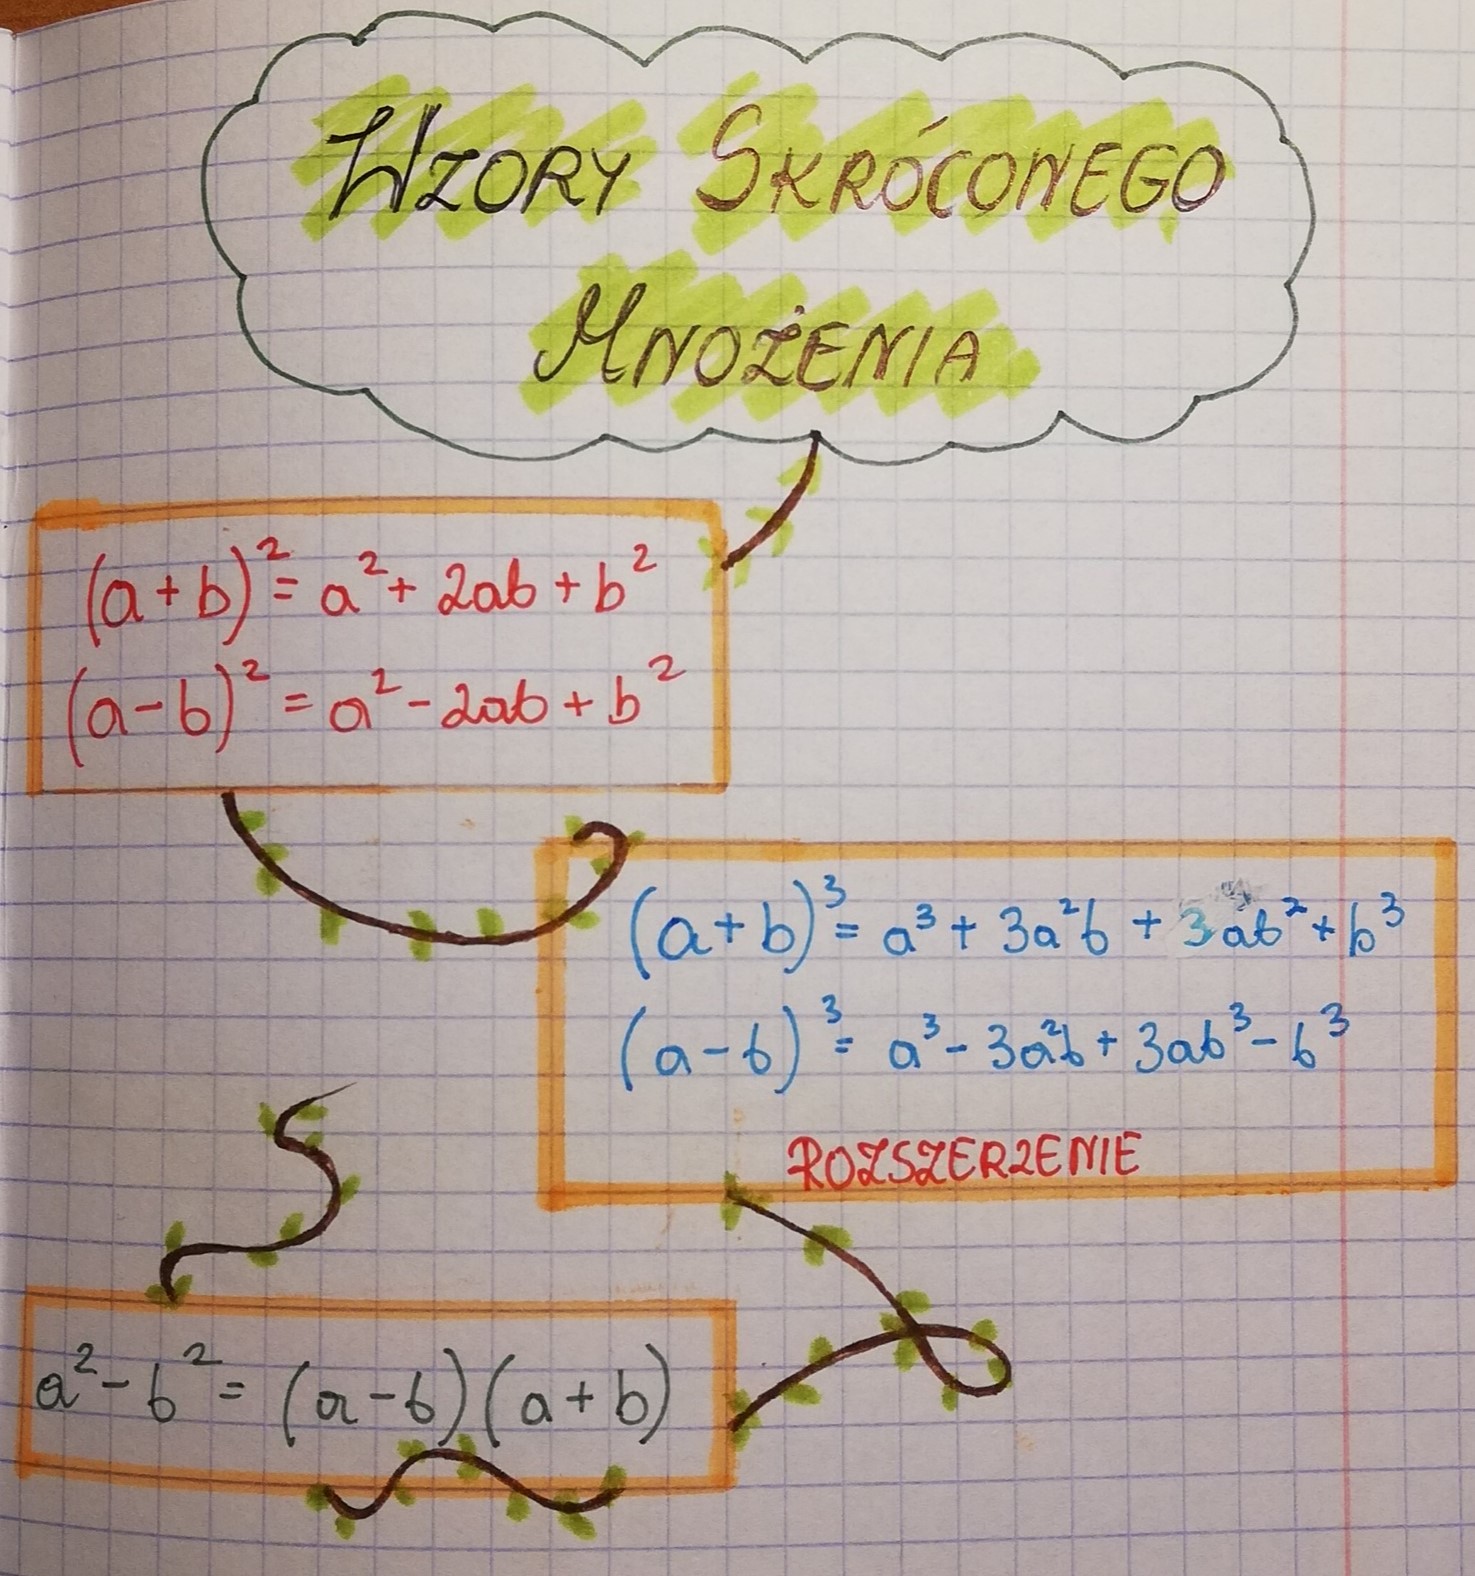 WZORY SKRÓCONEGO
MNOŻENIA
(a+b)² = a² + 2ab + b²
(a-b)² = a² - 2ab + b²
(a+b)³ = a³ + 3a²b + 3ab² + b³
(a-b)³ = a³ - 3a²b + 3ab³ - b³
ROZSZERZENIE
a² - b² = (a-b)(a+b)